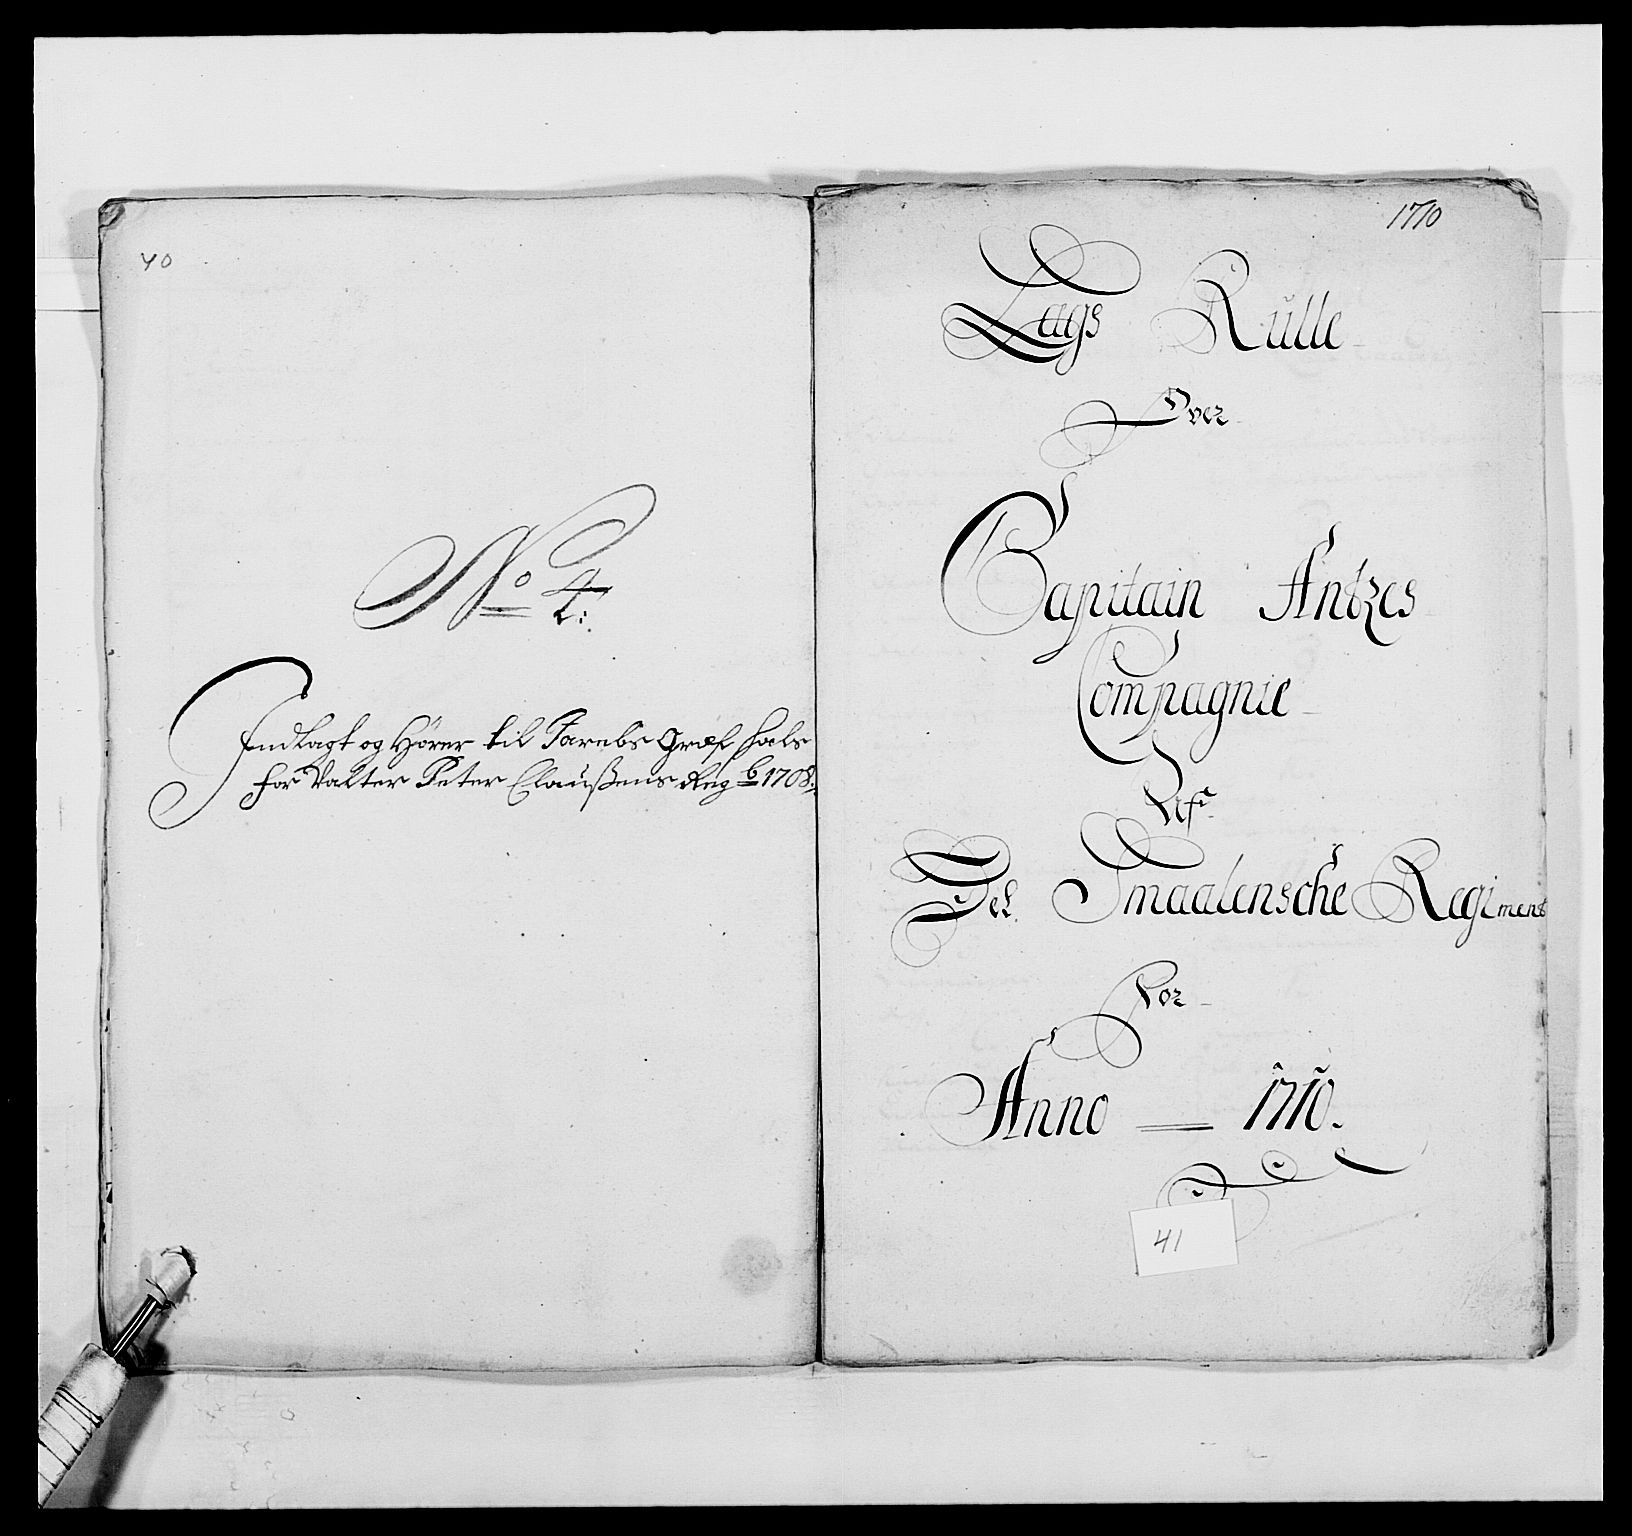 40
No 4:
Indlagt og Hører til Jarlsbr Græfskabs
for Valter Peter Claußens Regb 1708.
1710
Lags Rulle
Over
Capitain Antzes
Compagnie
Af
Det Smaalensche Regiment
For
Anno 1710.
41